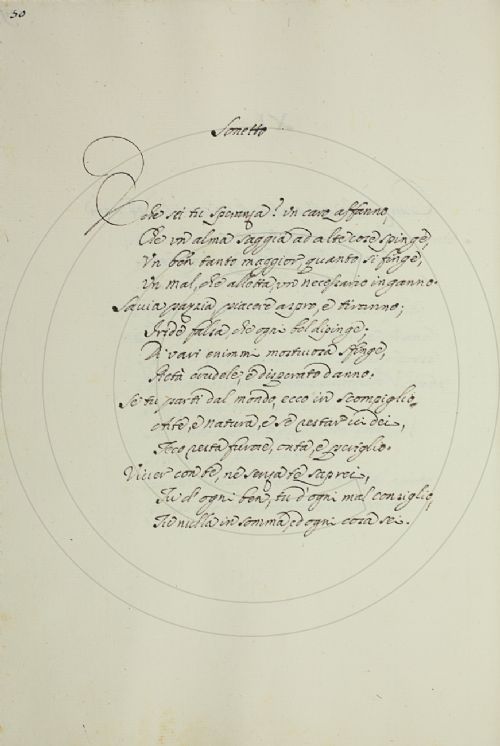 50
Sonetto
Che sei tu Speranza? un caro affanno,
Che un'alma saggia ad alte cose spinge,
Un ben tanto maggior, quanto si finge,
Un mal, che alletta, un necessario inganno.
Savia pazzia piacere aspro, e tiranno;
Iride falsa che ogni bel dipinge;
Di varj enimmi mostruosa sfinge,
Pietà crudele, e disperato danno.
Se tu parti dal mondo, ecco in scompiglio
Arte, e natura, e se restar ci dei,
Teco resta furore, onta, e periglio.
Viver con te, nè senza te saprei,
Tu d'ogni ben, tu d'ogni mal consiglio,
Tu nulla in somma, ed ogni cosa sei.